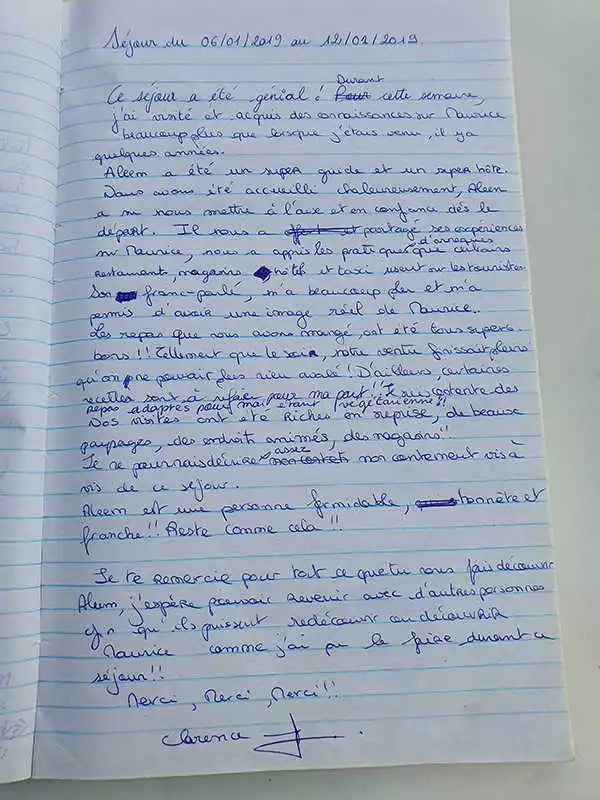 Séjour du 06/01/2019 au 12/01/2019
Durant
Ce séjour a été génial ! Pour cette semaine,
j'ai visité et acquis des connaissances sur Maurice
beaucoup plus que lorsque j'étais venu, il y a
quelques années.
Aleem a été un super guide et un super hôte.
Nous avons été accueilli chaleureusement, Aleem
a su nous mettre à l'aise et en confiance dès le
départ. Il nous a partagé ses expériences
sur Maurice, nous a appris les pratiques que certains
d'arnaques
restaurants, magasins hôtels et taxi usent sur les touristes.
Son franc-parlé, m'a beaucoup plu et m'a
permis d'avoir une image réel de Maurice..
Les repas que nous avons mangé, ont été tous supers
bons !! Tellement que le soir, notre ventre finissait pleins
qu'on ne pouvait plus rien avalé ! D'ailleurs, certaines
recettes sont à refaire pour ma part !! Je suis contente des
repas adaptés pour moi étant végétarienne !!
Nos visites ont été riches en , de beaux
paysages, des endroits animés, des magasins !!
Je ne pourrais décrire assez mon contentement vis à
vis de ce séjour.
Aleem est une personne formidable, honnête et
franche !! Reste comme cela !!
Je te remercie pour tout ce que tu nous fais découvrir
Aleem, j'espère pouvoir revenir avec d'autres personnes
afin qu'ils puissent redécouvrir ou découvrir
Maurice comme j'ai pu le faire durant ce
séjour !!
Merci, Merci, Merci !!
Clarence